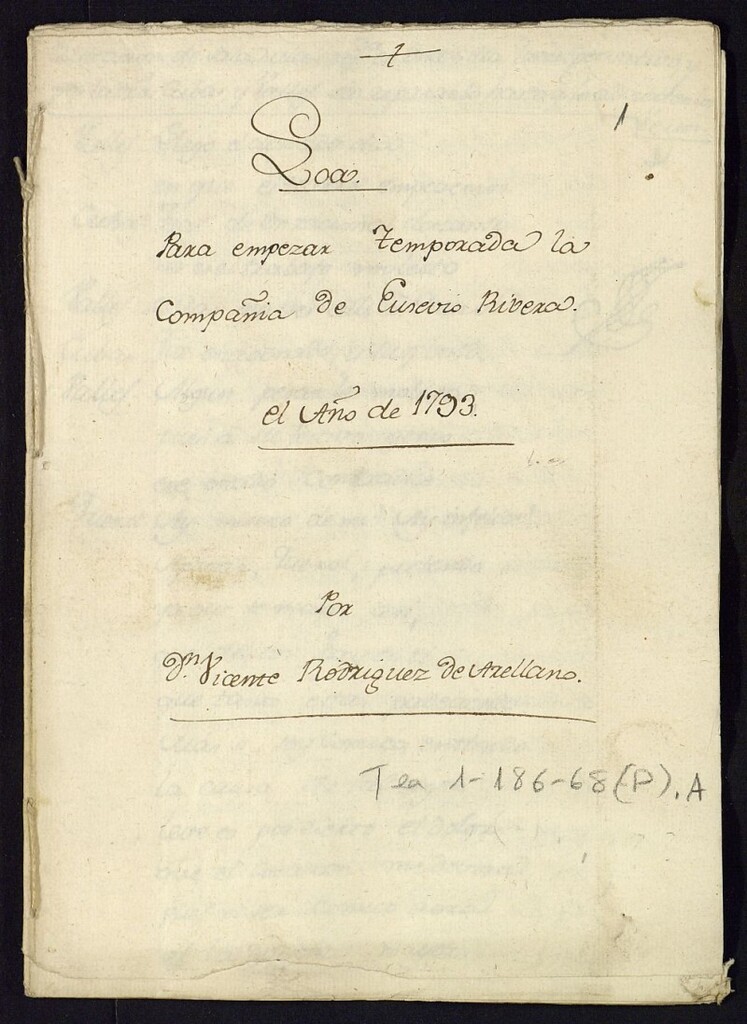 1
1
Loa.
Para empezar temporada la
Compañia de Eusevio Ribera.
el Año de 1793.
Por
Dn. Vicente Rodriguez de Arellano.
Tea 1-186-68(P).A